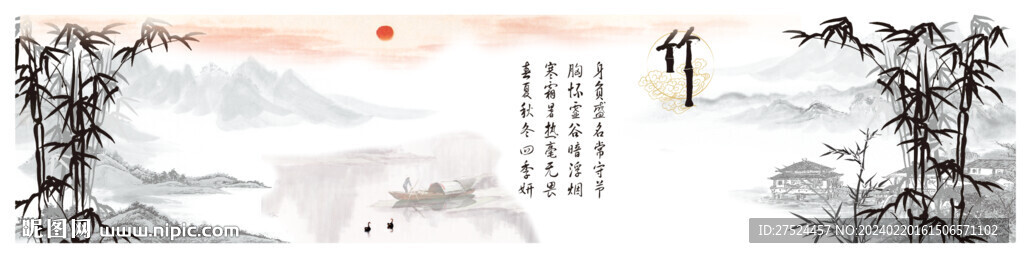 竹
身负盛名常守节
胸怀虚谷暗浮烟
寒霜暑热毫无畏
春夏秋冬四季妍
昵图网 www.nipic.com
ID:27524457 NO:20240220161506571102